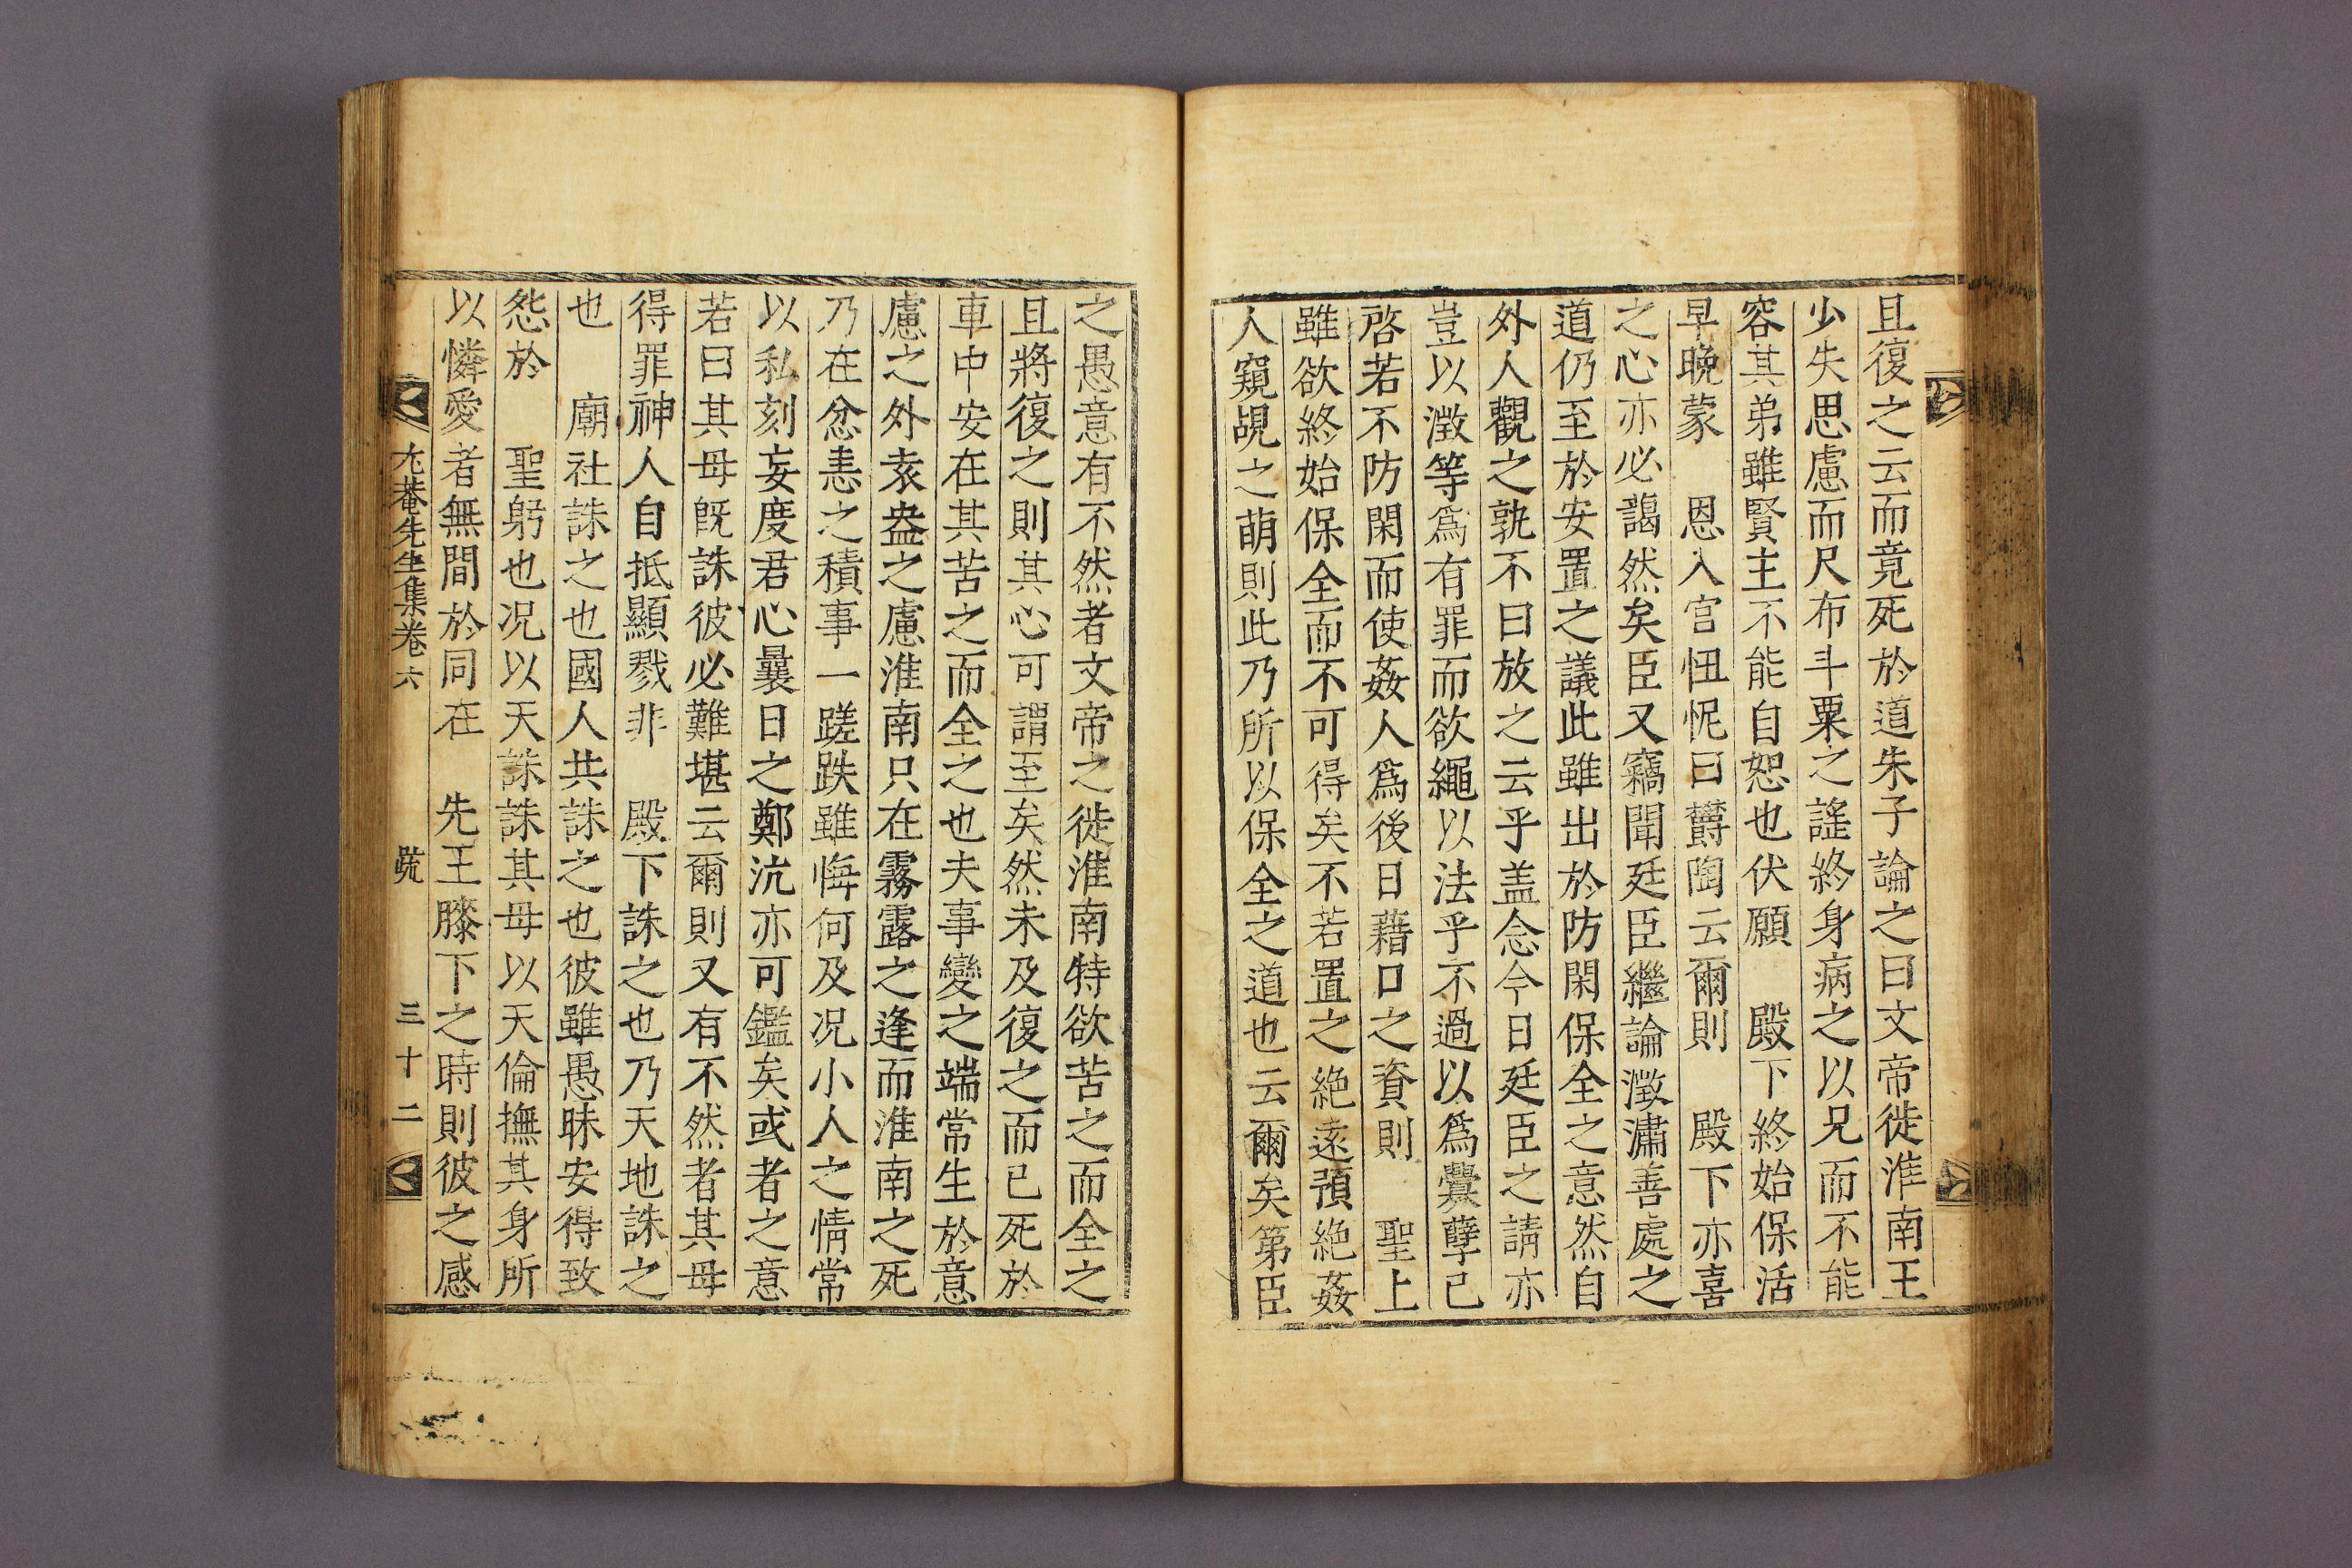 且復之云而竟死於道朱子論之曰文帝徙淮南王
少失思慮而尺布斗粟之謠終身病之以兄而不能
容其弟雖賢主不能自恕也伏願　殿下終始保活
早晩蒙　恩入宮忸怩曰欝陶云爾則　殿下亦喜
之心亦必藹然矣臣又竊聞廷臣繼論澂潚善處之
道仍至於安置之議此雖出於防閑保全之意然自
外人觀之孰不曰放之云乎盖念今日廷臣之請亦
豈以澂等爲有罪而欲繩以法乎不過以爲釁孽已
啓若不防閑而使姦人爲後日藉口之資則　聖上
雖欲終始保全而不可得矣不若置之絶遠預絶姦
人窺覘之萌則此乃所以保全之道也云爾矣第臣
之愚意有不然者文帝之徙淮南特欲苦之而全之
且將復之則其心可謂至矣然未及復之而已死於
車中安在其苦之而全之也夫事變之端常生於意
慮之外袁盎之慮淮南只在霧露之逢而淮南之死
乃在忿恚之積事一蹉跌雖悔何及况小人之情常
以私刻妄度君心曩日之鄭沆亦可鑑矣或者之意
若曰其母旣誅彼必難堪云爾則又有不然者其母
得罪神人自抵顯戮非　殿下誅之也乃天地誅之
也　廟社誅之也國人共誅之也彼雖愚昧安得致
怨於　聖躬也况以天誅誅其母以天倫撫其身所
以憐愛者無間於同在　先王膝下之時則彼之感
尤菴先生集卷六　䟽　三十二